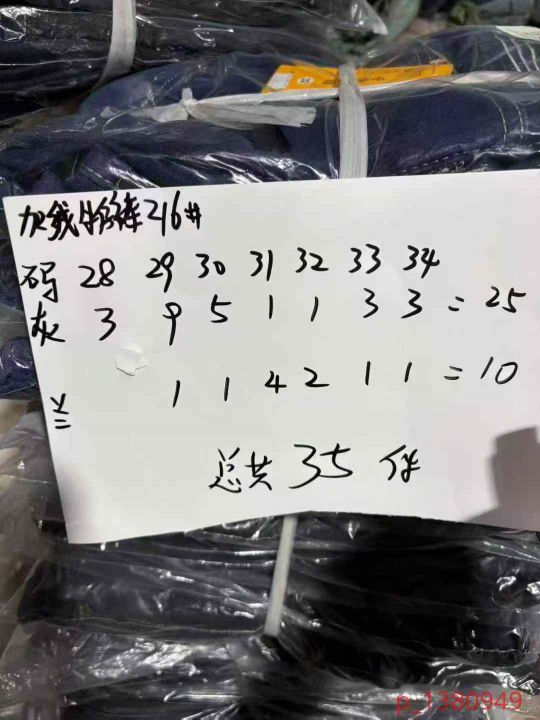 加绒牛仔裤216#
码 28 29 30 31 32 33 34
灰 3 9 5 1 1 3 3 = 25
兰 1 1 4 2 1 1 = 10
总共 35 件
p_1380949